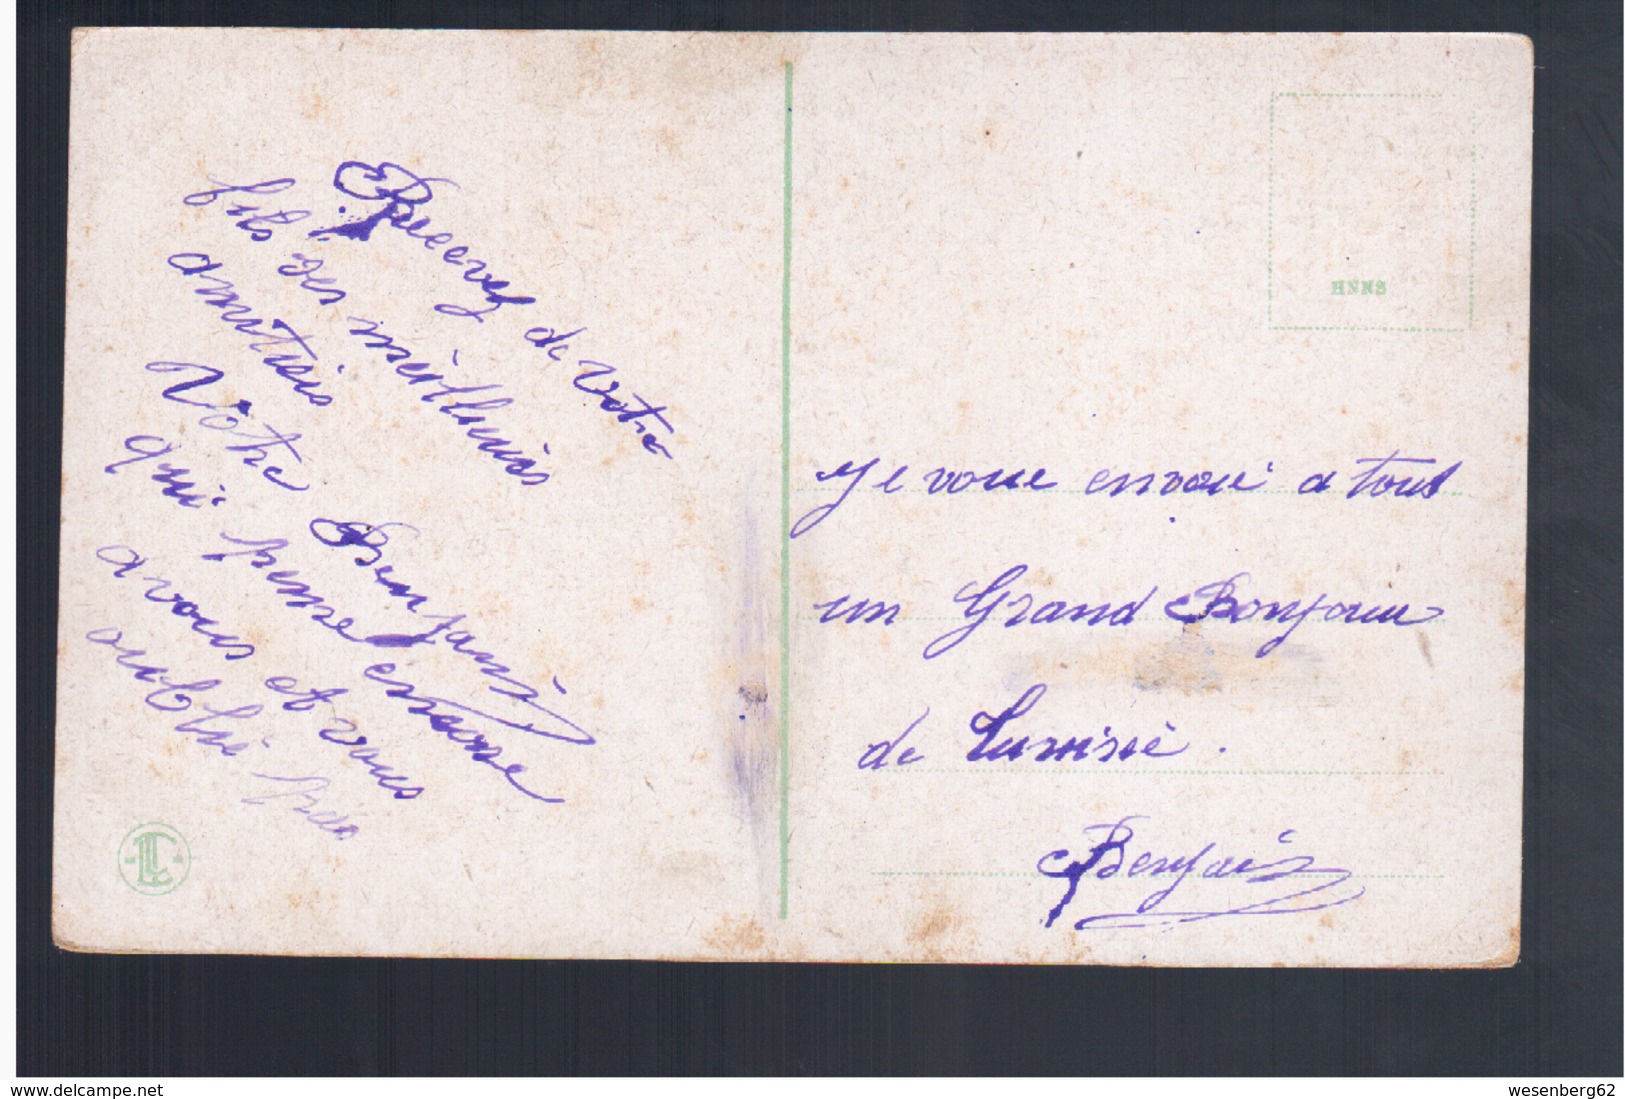 Recevez de Votre
fils ses meilleures
amitiés
Vôtre Benjamin
qui pense encore
a vous et vous
oublié pas
Je vous envoie a tout
un Grand Bonjour
de
Benjamin
HNNS
www.delcampe.net
wesenberg62